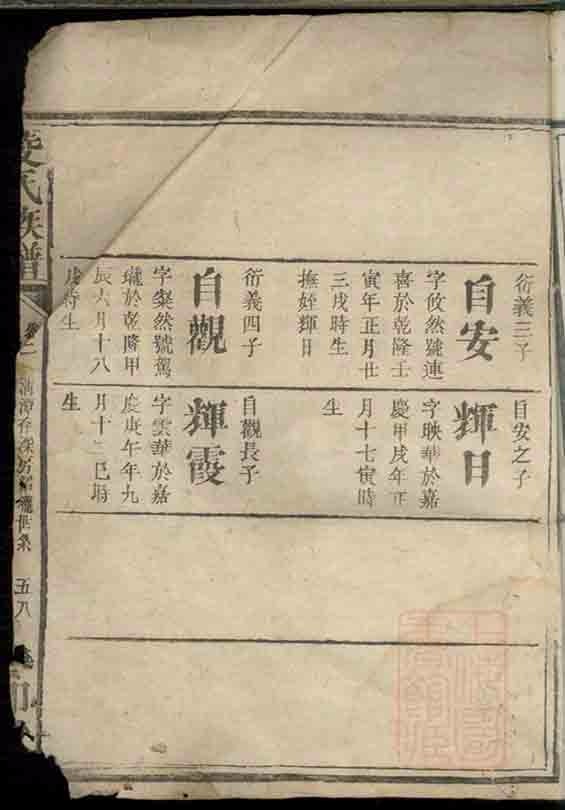 衍義三子
自安
字攸然號連
喜於乾隆壬
寅年正月廿
三戌時生
撫姪輝日
衍義四子
自觀
字粲然號駕
瓏於乾隆甲
辰六月十八
戌時生
自安之子
輝日
字映華於嘉
慶甲戌年正
月十七寅時
生
自觀長子
輝霞
字雲華於嘉
慶庚午年九
月十二巳時
生
氏族譜
世系
五八